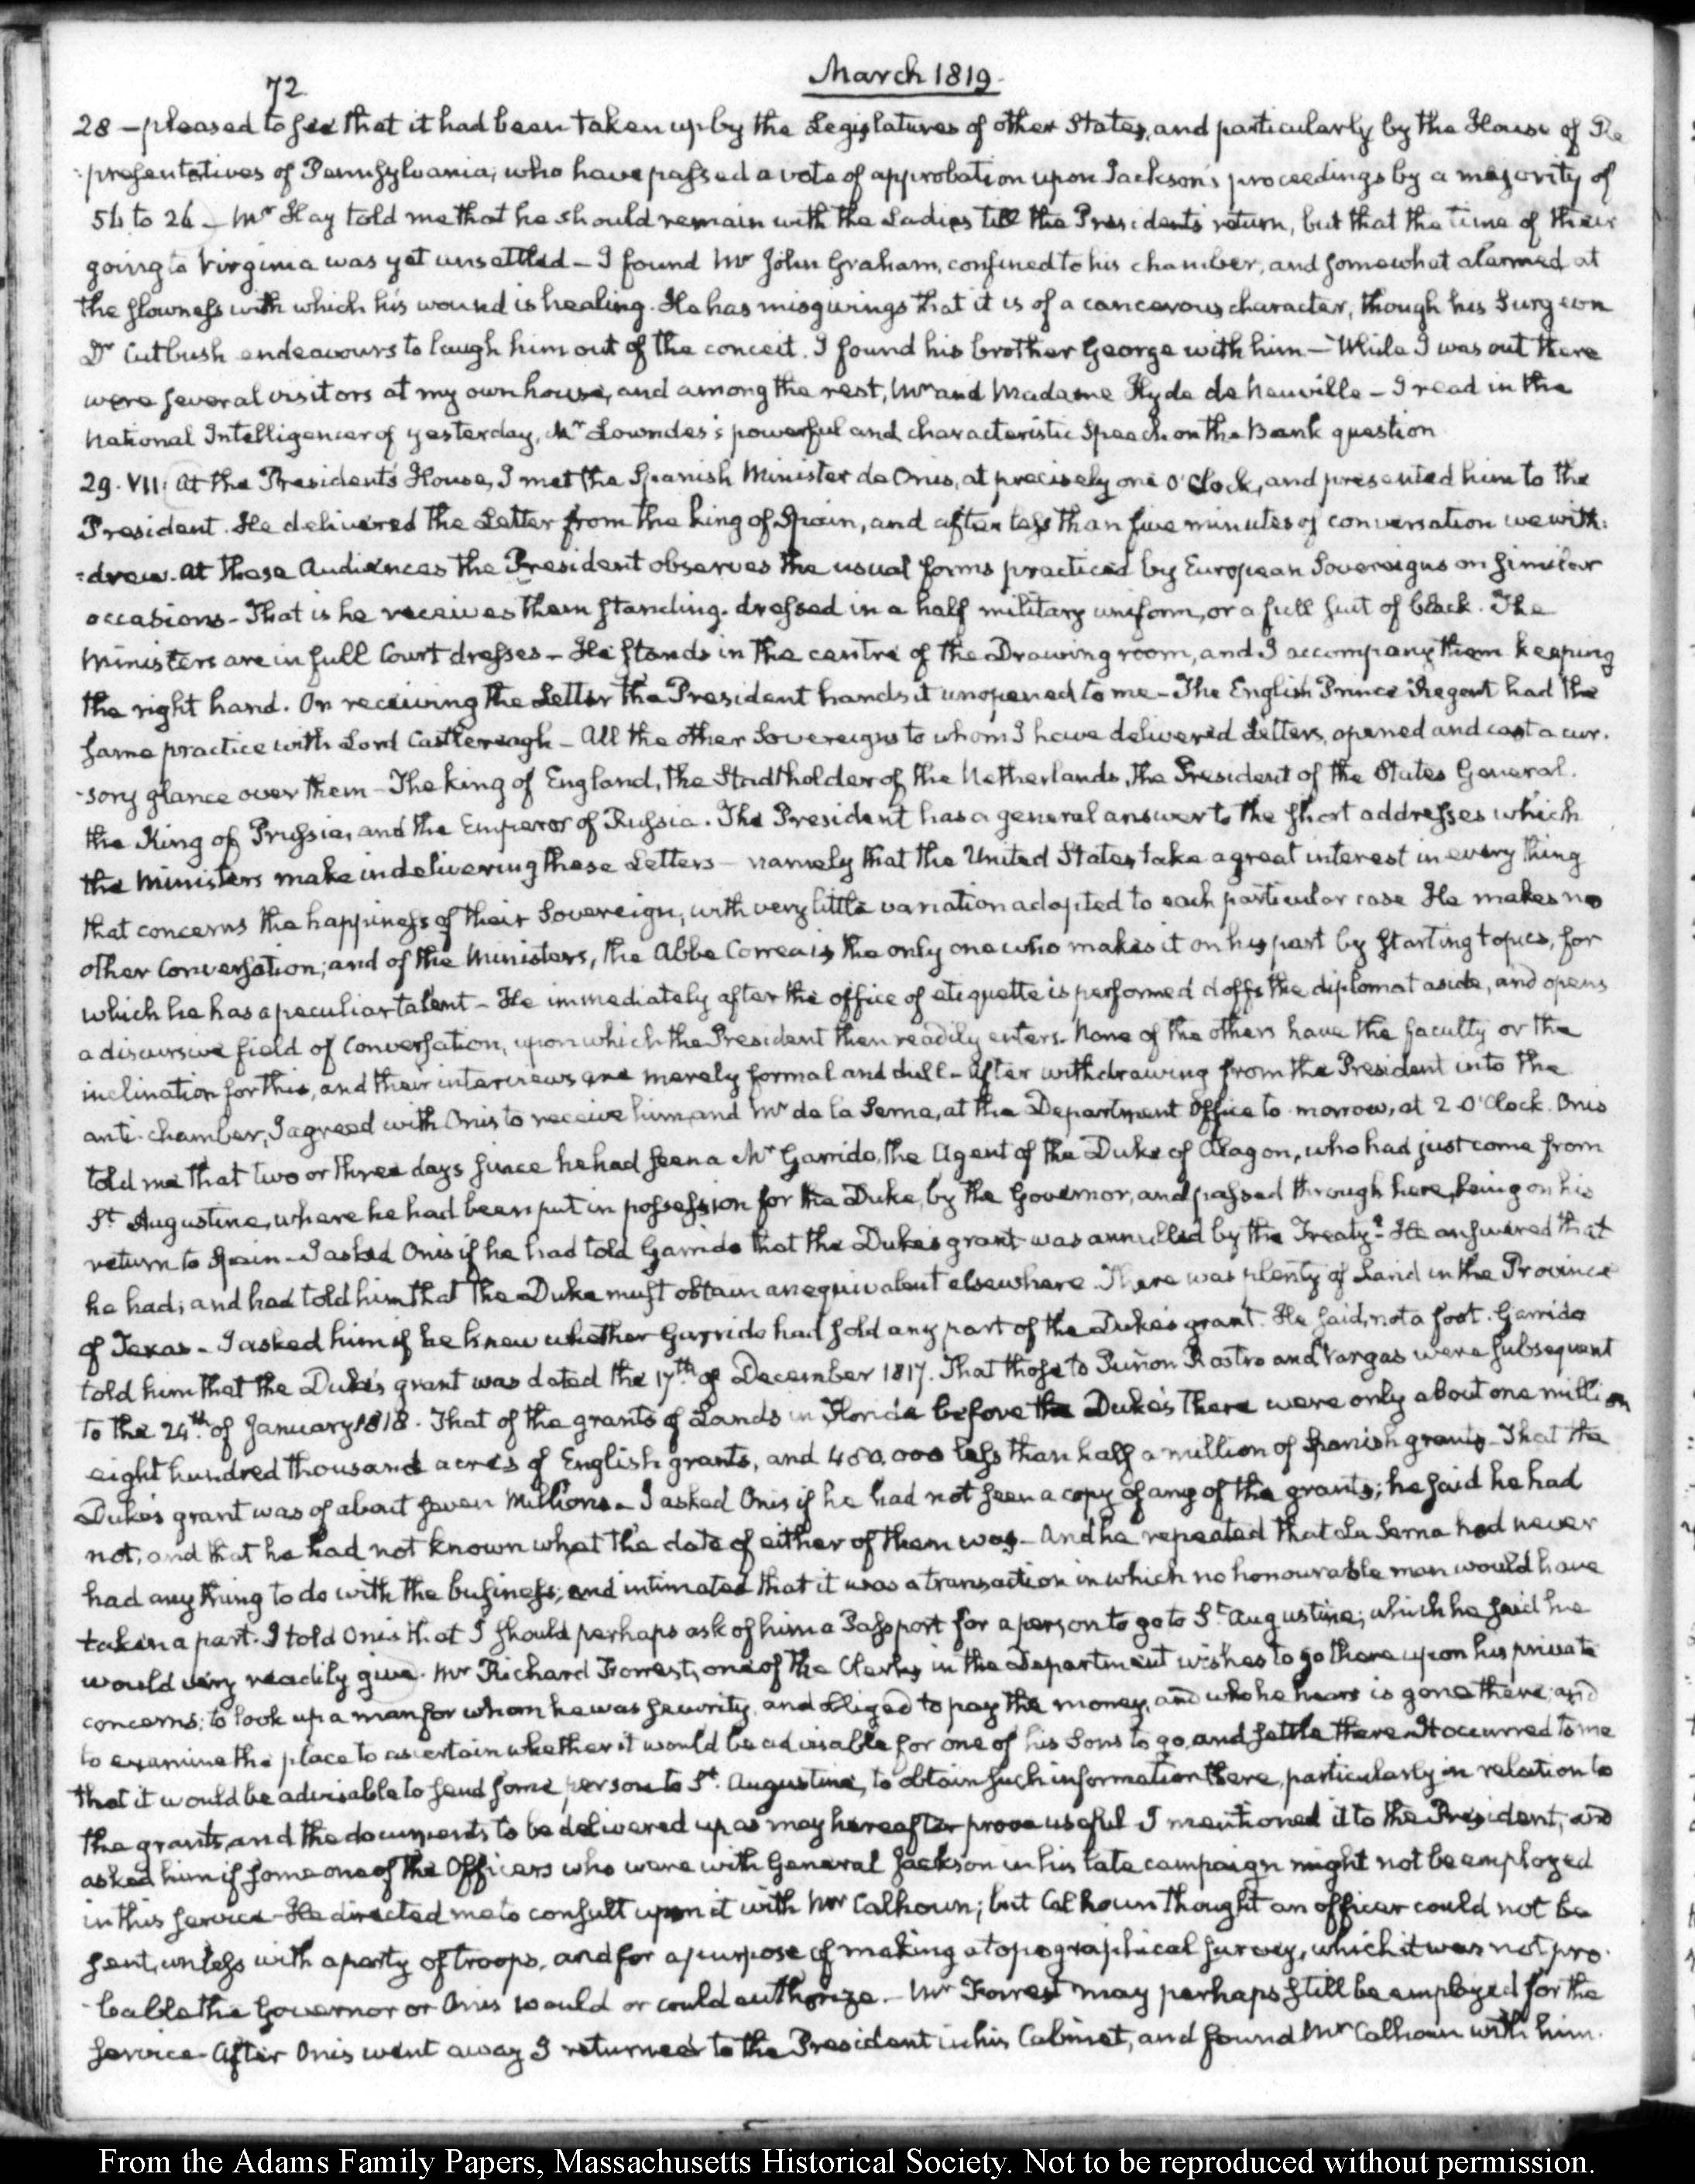 72
March 1819.
28 — pleased to see that it had been taken up by the Legislatures of other States, and particularly by the House of Re
:presentatives of Pennsylvania; who have passed a vote of approbation upon Jackson's proceedings by a majority of
to 26 — Mr Hay told me that he should remain with the Ladies till the President's return, but that the time of their
going to Virginia was yet unsettled — I found Mr John Graham, confined to his chamber, and somewhat alarmed at
the slowness with which his wound is healing. He has misgivings that it is of a cancerous character, though his Surgeon
Dr Cutbush endeavours to laugh him out of the conceit. I found his brother George with him — While I was out there
were several visitors at my own house, and among the rest, Mr and Madame Hyde de Neuville — I read in the
National Intelligencer of yesterday, Mr Lowndes's powerful and characteristic Speech on the Bank question
29. VII. At the President's House, I met the Spanish Minister de Onis, at precisely one O'Clock, and presented him to the
President. He delivered the Letter from the king of Spain, and after less than five minutes of conversation we with:
:drew. At these Audiences the President observes the usual forms practiced by European Sovereigns on similar
occasions — That is he receives them standing. dressed in a half military uniform, or a full suit of black. The
Ministers are in full Court dresses — He stands in the centre of the Drawing room, and I accompany them keeping
the right hand. On receiving the Letter the President hands it unopened to me — The English Prince Regent had the
same practice with Lord Castlereagh — All the other Sovereigns to whom I have delivered Letters, opened and cast a cur-
-sory glance over them — The king of England, the Stadtholder of the Netherlands, the President of the States General.
the King of Prussia, and the Emperor of Russia. The President has a general answer to the short addresses which
the Ministers make in delivering these Letters — namely that the United States take a great interest in every thing
that concerns the happiness of their Sovereign, with very little variation adapted to each particular case He makes no
other Conversation; and of the Ministers, the Abbe Correa is the only one who makes it on his part by starting topics, for
which he has a peculiar talent — He immediately after the office of etiquette is performed doffs the diplomat aside, and opens
a discursive field of Conversation, upon which the President then readily enters. None of the others have the faculty or the
inclination for this, and their interviews are merely formal and dull — After withdrawing from the President into the
anti-chamber, I agreed with Onis to receive him, and Mr de la Serna, at the Department Office to-morrow, at 2 O'Clock. Onis
told me that two or three days since he had seen a Mr Garrido, the Agent of the Duke of Alagon, who had just come from
St Augustine, where he had been put in possession for the Duke, by the Governor, and passed through here, being on his
return to Spain — I asked Onis if he had told Garrido that the Duke's grant was annulled by the Treaty? He answered that
he had; and had told him that the Duke must obtain an equivalent elsewhere. There was plenty of Land in the Province
of Texas — I asked him if he knew whether Garrido had sold any part of the Duke's grant. He said, not a foot. Garrido
told him that the Duke's grant was dated the 17th of December 1817. That those to Puñon Rostro and Vargas were subsequent
to the 24th of January 1818. That of the grants of Lands in Florida before the Duke's there were only about one million
eight hundred thousand acres of English grants, and less than half a million of Spanish grants — That the
Duke's grant was of about seven Millions — I asked Onis if he had not seen a copy of any of the grants; he said he had
not; and that he had not known what the date of either of them was — And he repeated that La Serna had never
had any thing to do with the business; and intimated that it was a transaction in which no honourable man would have
taken a part. I told Onis that I should perhaps ask of him a Passport for a person to go to St Augustine; which he said he
would very readily give. Mr Richard Forrest, one of the Clerks in the Department wishes to go there upon his private
concerns; to look up a man for whom he was security, and obliged to pay the money, and who he hears is gone there; and
to examine the place to ascertain whether it would be advisable for one of his Sons to go, and settle there. It occurred to me
that it would be advisable to send some person to St. Augustine, to obtain such information there, particularly in relation to
the grants, and the documents to be delivered up as may hereafter prove useful. I mentioned it to the President; and
asked him if some one of the Officers who were with General Jackson in his late campaign might not be employed
in this service — He directed me to consult upon it with Mr Calhoun; but Calhoun thought an officer could not be
sent, unless with a party of troops, and for a purpose of making a topographical survey, which it was not pro-
-bable the Governor or Onis would or could authorize. — Mr Forrest may perhaps still be employed for the
service — After Onis went away I returned to the President in his Cabinet, and found Mr Calhoun with him.
From the Adams Family Papers, Massachusetts Historical Society. Not to be reproduced without permission.